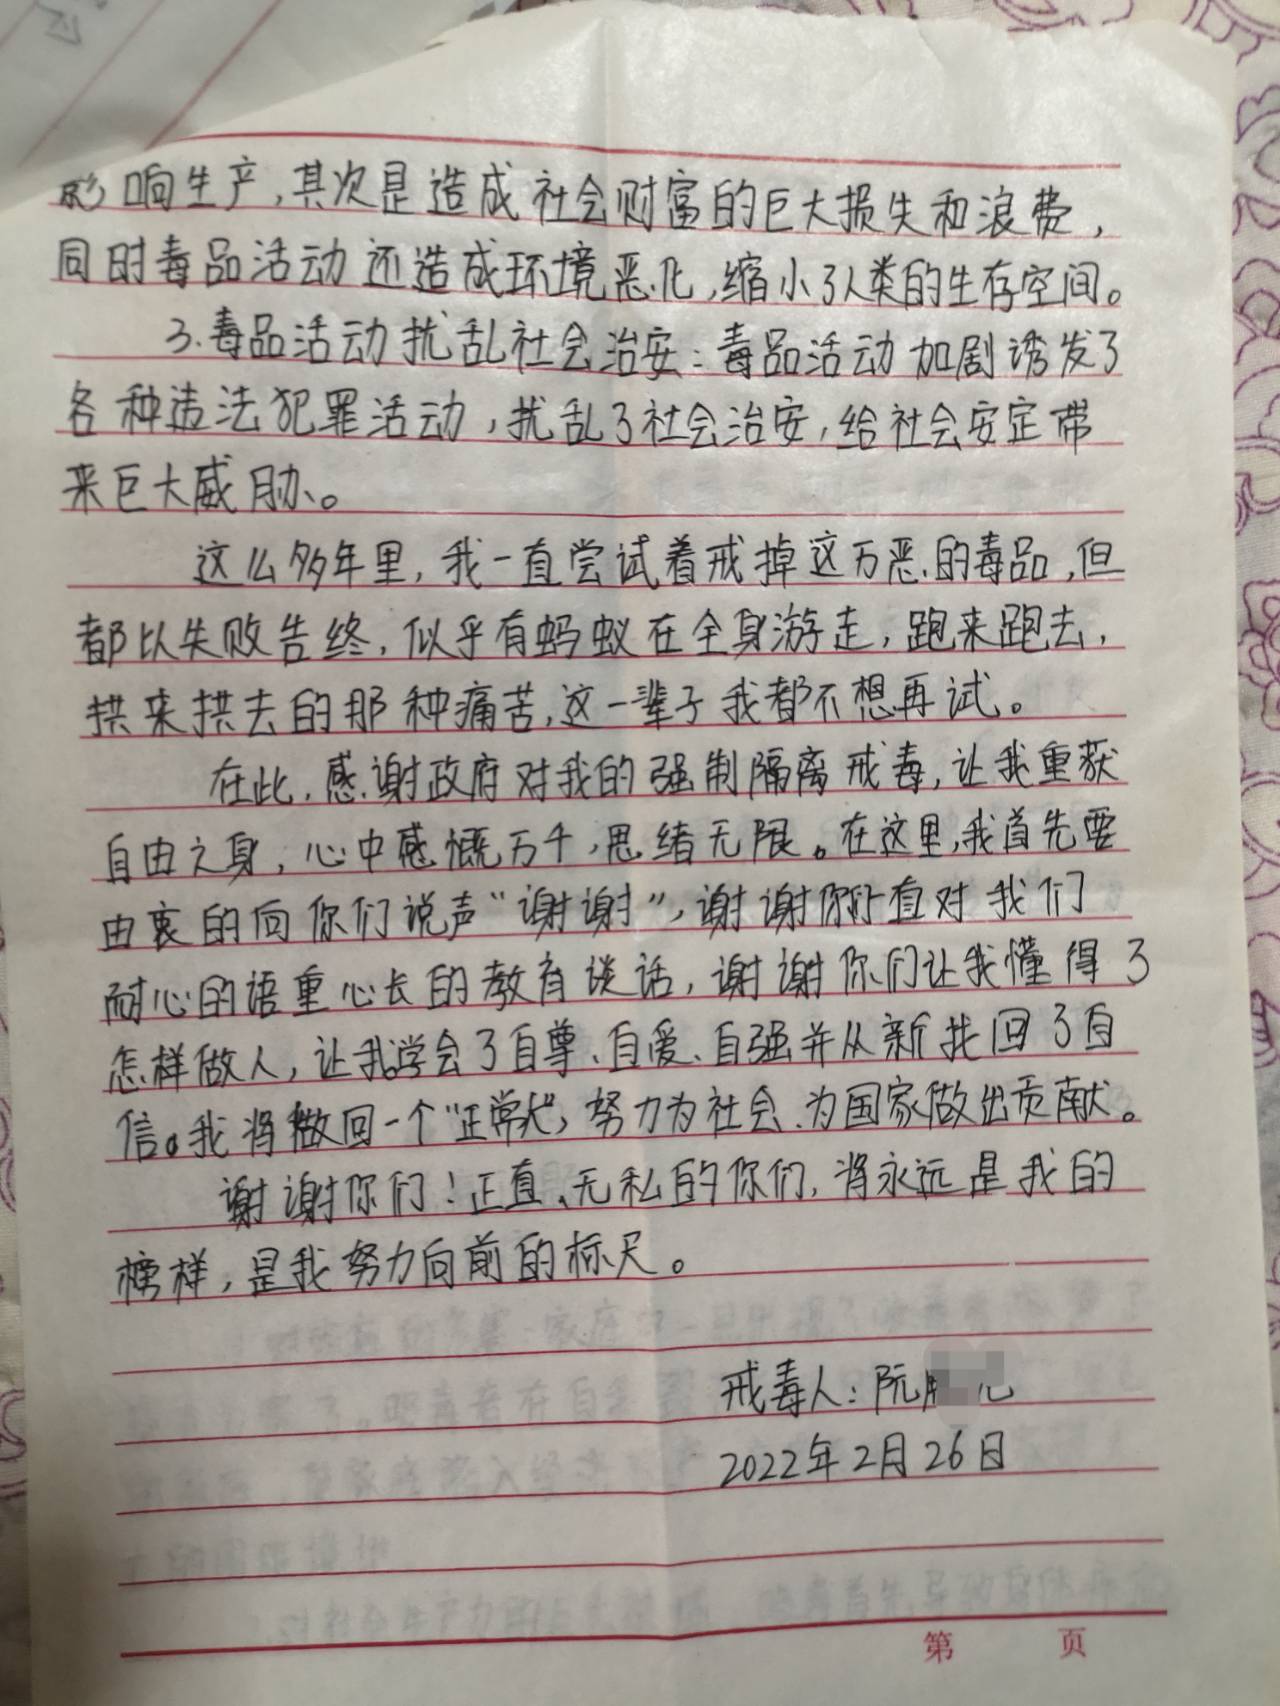 影响生产,其次是造成社会财富的巨大损失和浪费,
同时毒品活动还造成环境恶化,缩小了人类的生存空间。
3.毒品活动扰乱社会治安:毒品活动加剧诱发了
各种违法犯罪活动,扰乱了社会治安,给社会安定带
来巨大威胁。
这么多年里,我一直尝试着戒掉这万恶的毒品,但
都以失败告终,似乎有蚂蚁在全身游走,跑来跑去,
拱来拱去的那种痛苦,这一辈子我都不想再试。
在此,感谢政府对我的强制隔离戒毒,让我重获
自由之身,心中感慨万千,思绪无限。在这里,我首先要
由衷的向你们说声“谢谢”,谢谢你们一直对我们
耐心的语重心长的教育谈话,谢谢你们让我懂得了
怎样做人,让我学会了自尊、自爱、自强并从新找回了自
信。我将做回一个“正常人”,努力为社会、为国家做出贡献。
谢谢你们!正直、无私的你们,将永远是我的
榜样,是我努力向前的标尺。
戒毒人:阮
2022年2月26日
第 页